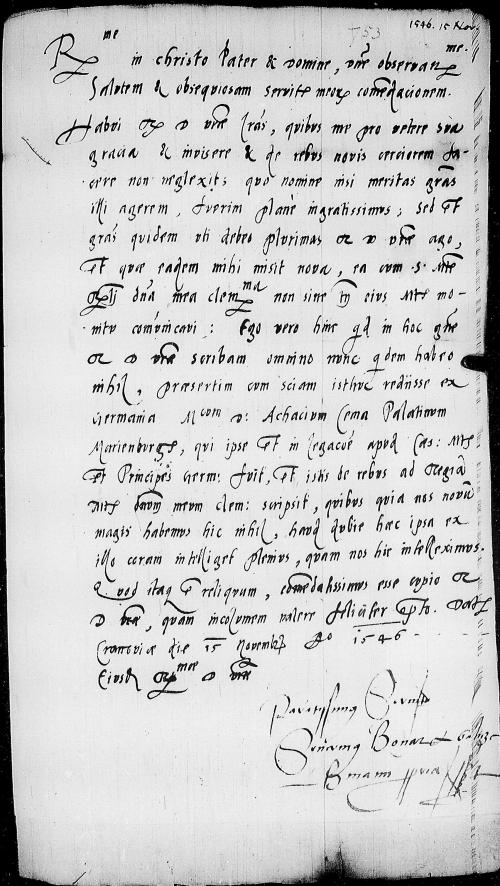 1546. 15 Nov
R me in christo Pater & Domine, dne observan me.
Salutem & obsequiosam servitu meoru comendacionem.
Habui R D vrae lras, quibus me pro vetere sua
gracia & invisere & de rebus novis cerciorem fa-
cere non neglexit; quo nomine nisi meritas gras
illi agerem, fuerim plane ingratissimus; Sed et
gras quidem uti debeo plurimas R D vrae ago,
et quae eadem mihi misit nova, ea cum S. Mte
dna mea clem ma non sine eius Mts mo-
nitu comunicavi: Ego vero hinc qd in hoc gne
R D vrae scribam omnino nunc quidem habeo
nihil, praesertim cum sciam isthuc rediisse ex
Germania M cum D: Achacium Cema Palatinum
Marienburgen, qui ipse et in legacoe apud Caes: Mte
et Principes Germ: fuit, et istis de rebus ad Regia
Mte dnum meum clem: scripsit, quibus quia nos novi
magis habemus hic nihil, haud dubie haec ipsa ex
illo coram intelliget plenius, quam nos hic intelleximus.
Quod itaq e reliquum, comendatissimus esse cupio R
D vrae, quam incolumem valere feliciter opto. Dat
Cracoviae die 15 Novembr Ao 1546
Eiusd R mae D vrae
Paratissimus Servito
Severinus Bonar
Bmann